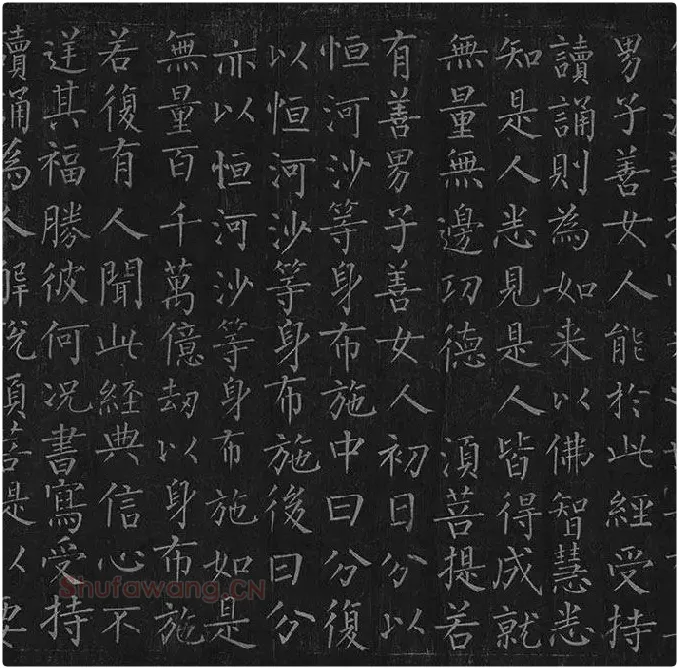 男子善女人能於此經受持
讀誦則為如来以佛智慧悉
知是人悉見是人皆得成就
無量無邊功德 須菩提若
有善男子善女人初日分以
恒河沙等身布施中日分復
以恒河沙等身布施後日分
亦以恒河沙等身布施如是
無量百千萬億劫以身布施
若復有人聞此經典信心不
逆其福勝彼何况書寫受持
讀誦為人解說須菩提以要
Shufawang.CN